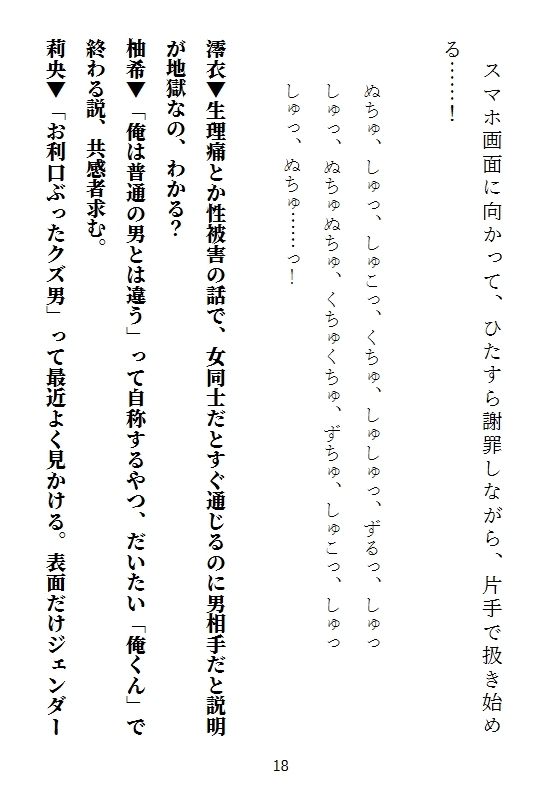 スマホ画面に向かって、ひたすら謝罪しながら、片手で扱き始め
る……！
ぬちゅ、しゅっ、しゅこっ、くちゅ、しゅしゅっ、ずるっ、しゅっ
しゅっ、ぬちゅぬちゅ、くちゅくちゅ、ずちゅ、しゅこっ、しゅっ
しゅっ、ぬちゅ……っ！
澪衣▼生理痛とか性被害の話で、女同士だとすぐ通じるのに男相手だと説明
が地獄なの、わかる？
柚希▼「俺は普通の男とは違う」って自称するやつ、だいたい「俺くん」で
終わる説、共感者求む。
莉央▼「お利口ぶったクズ男」って最近よく見かける。表面だけジェンダー
18